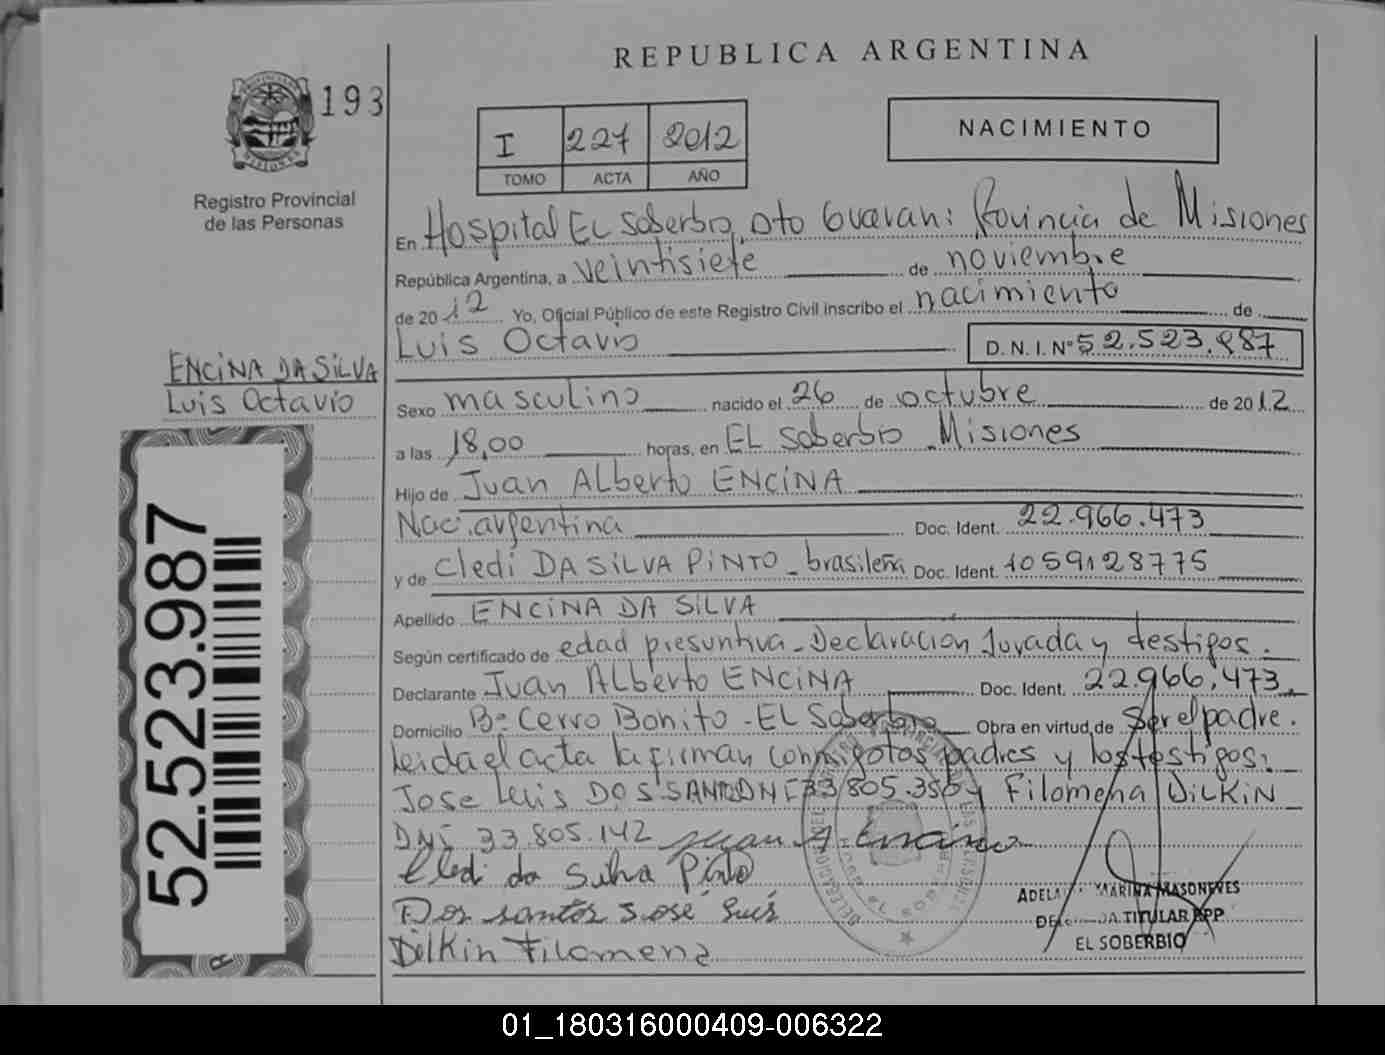 REPUBLICA ARGENTINA
193
I 227 2012
TOMO ACTA AÑO
NACIMIENTO
Registro Provincial
de las Personas
En Hospital EL Soberbio, Dto Guarani Provincia de Misiones
República Argentina, a veintisiete de noviembre
de 2012 Yo, Oficial Público de este Registro Civil inscribo el nacimiento de
Luis Octavio D.N.I. Nº 52.523.987
ENCINA DA SILVA
Luis Octavio
Sexo masculino nacido el 26 de octubre de 2012
a las 18,00 horas, en EL Soberbio - Misiones
Hijo de Juan Alberto ENCINA
Nac. argentina Doc. Ident. 22.966.473
y de Cledi DA SILVA PINTO - brasileña Doc. Ident. 1059128775
Apellido ENCINA DA SILVA
Según certificado de edad presuntiva - Declaracion Jurada y testigos.
Declarante Juan Alberto ENCINA Doc. Ident. 22.966.473
Domicilio Bº Cerro Bonito - EL Soberbio Obra en virtud de Ser el padre.
Leida el acta la firman conmigo los padres y los testigos:
Jose Luis DOS SANTOS DNI 33.805.350 y Filomena DILKIN
DNI 33.805.142 Juan A. Encina
Cledi da Silva Pinto
Dos santos José Luis
Dilkin Filomena
52.523.987
MARINA MASONEVES
TITULAR RPP
EL SOBERBIO
01_180316000409-006322